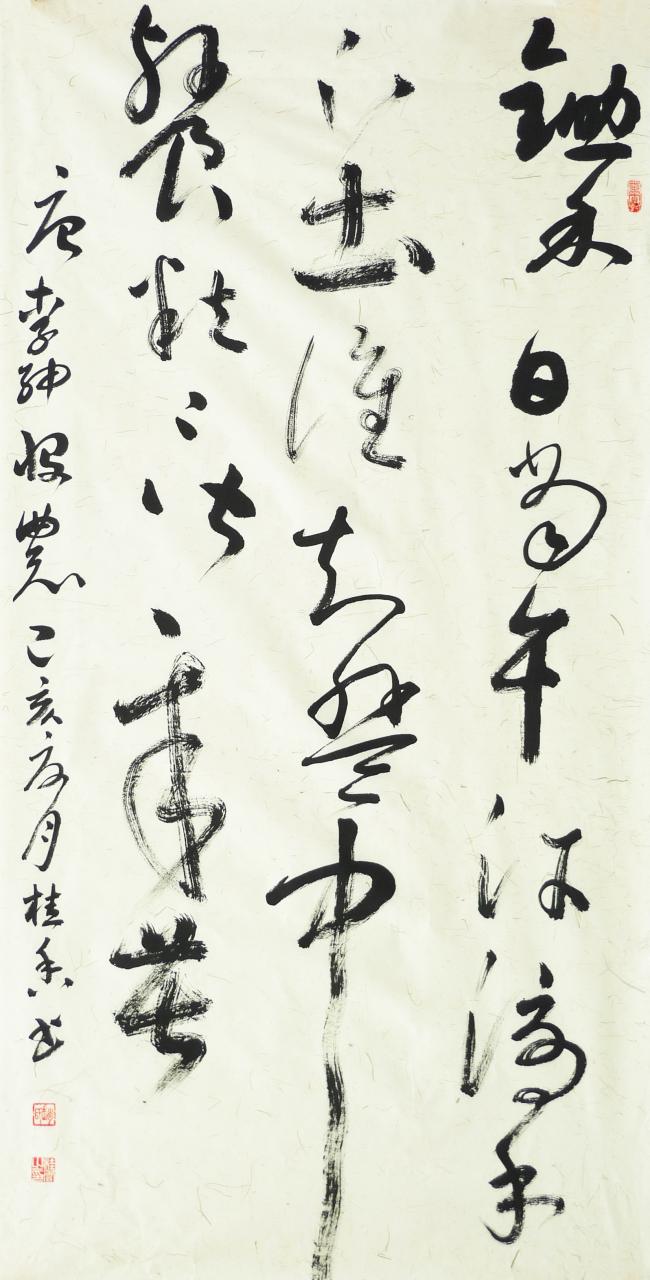 鋤禾日當午汗滴禾
下土誰知盤中
餐粒粒皆辛苦
唐李紳憫農己亥月桂香书